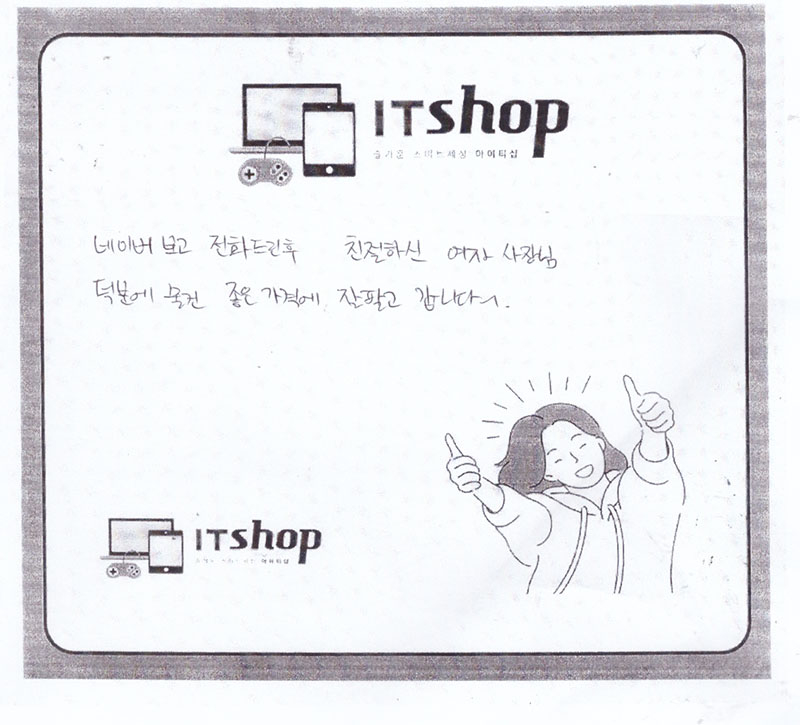 ITshop
스마트세상 아이티샵
네이버 보고 전화드린후 친절하신 여자 사장님
덕분에 물건 좋은 가격에 잘팔고 갑니다~.
ITshop
아이티샵